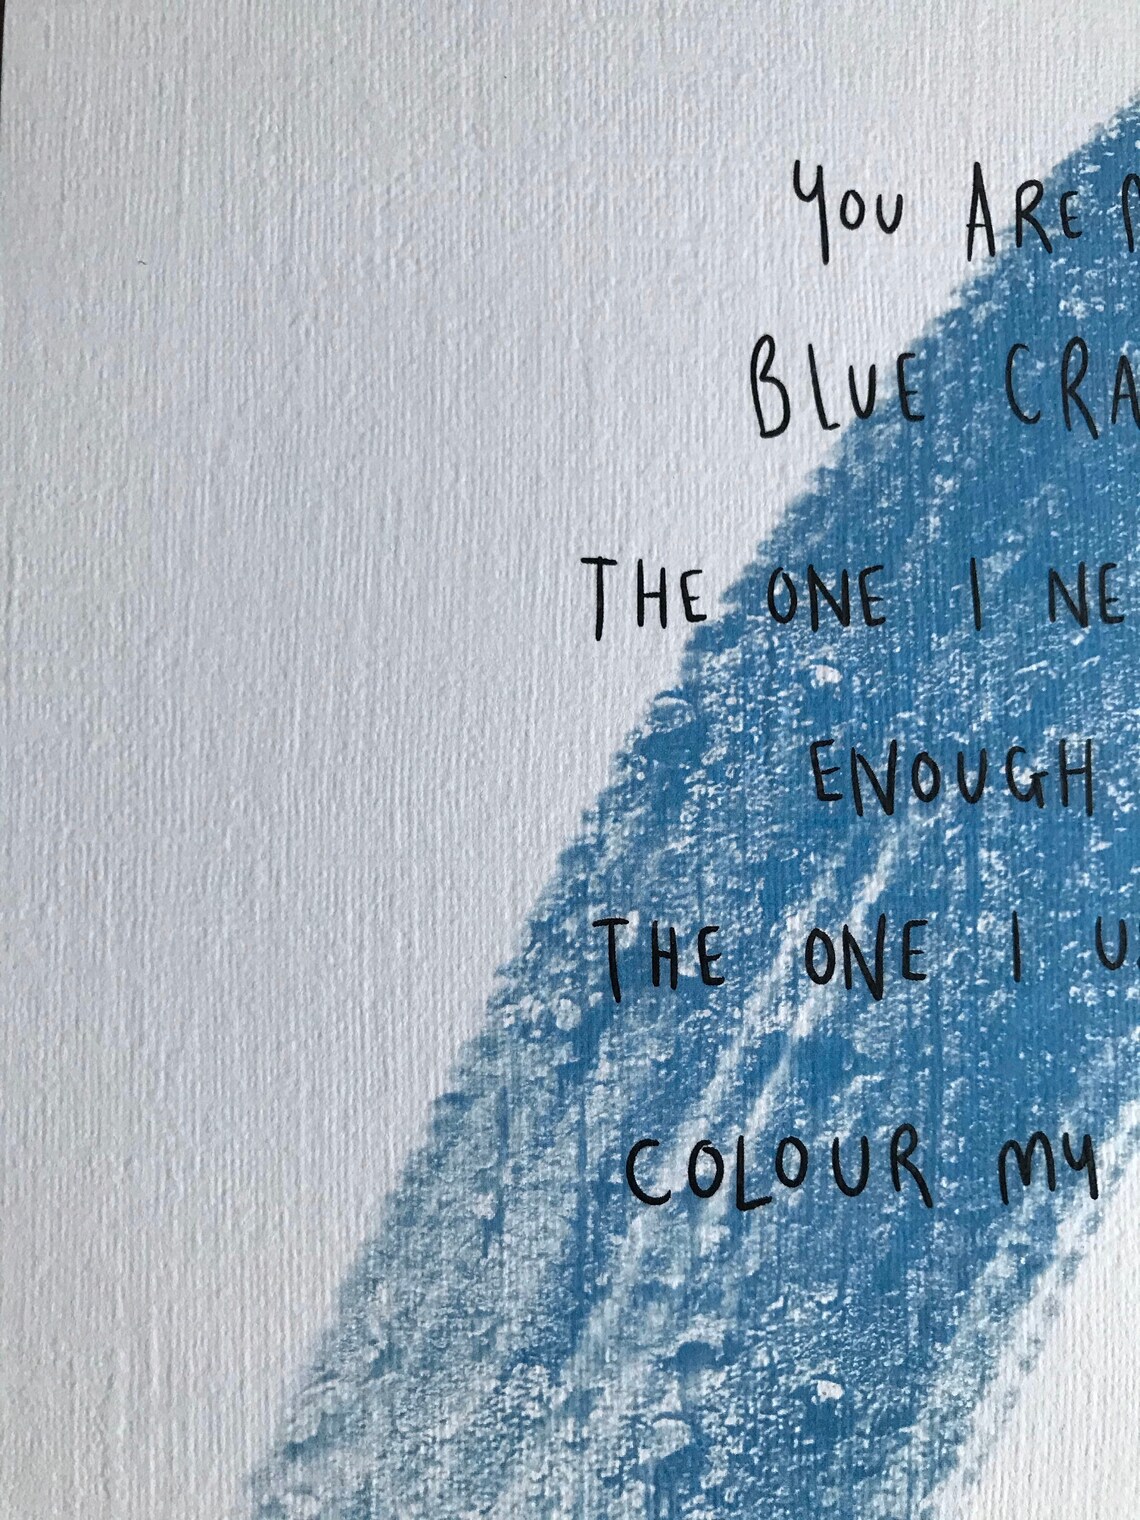 YOU ARE
BLUE
THE ONE I
ENOUGH
THE ONE I
COLOUR MY